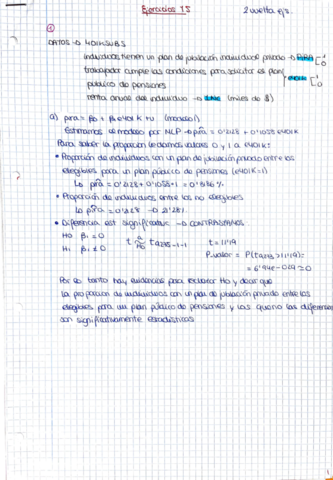 Ejercicios T5
2 vuelta ejs.
①
DATOS → 401KSUBS
individuos tienen un plan de jubilación individual privado → PIRA [1 0
trabajador cumple las condiciones para solicitar el plan público de pensiones → e401k [1 0
renta anual del individuo → inc (miles de $)
a) pira = β0 + β1 e401K + u (modelo 1)
Estimamos el modelo por → pira = 0'2128 + 0'1058 e401K
Para saber la proporción le damos valores 0 y 1 a e401K:
• Proporción de individuos con un plan de jubilación privado entre los
elegibles para un plan público de pensiones (e401K=1)
↳ pira = 0'2128 + 0'1058·1 = 0'3186
• Proporción de individuos entre los no elegibles
↳ pira = 0'2128 → 21'28%
• Diferencia est significativa → CONTRASTAMOS
H0 β1 = 0
H1 β1 ≠ 0
t = 11'19
P.valor = P(t >11'19) =
≃ 0
Por lo tanto hay evidencias para rechazar H0 y decir que
la proporción de individuos con un plan de jubilación privado entre los
elegibles para un plan público de pensiones y los que no las diferencias
son significativamente estadísticas
1